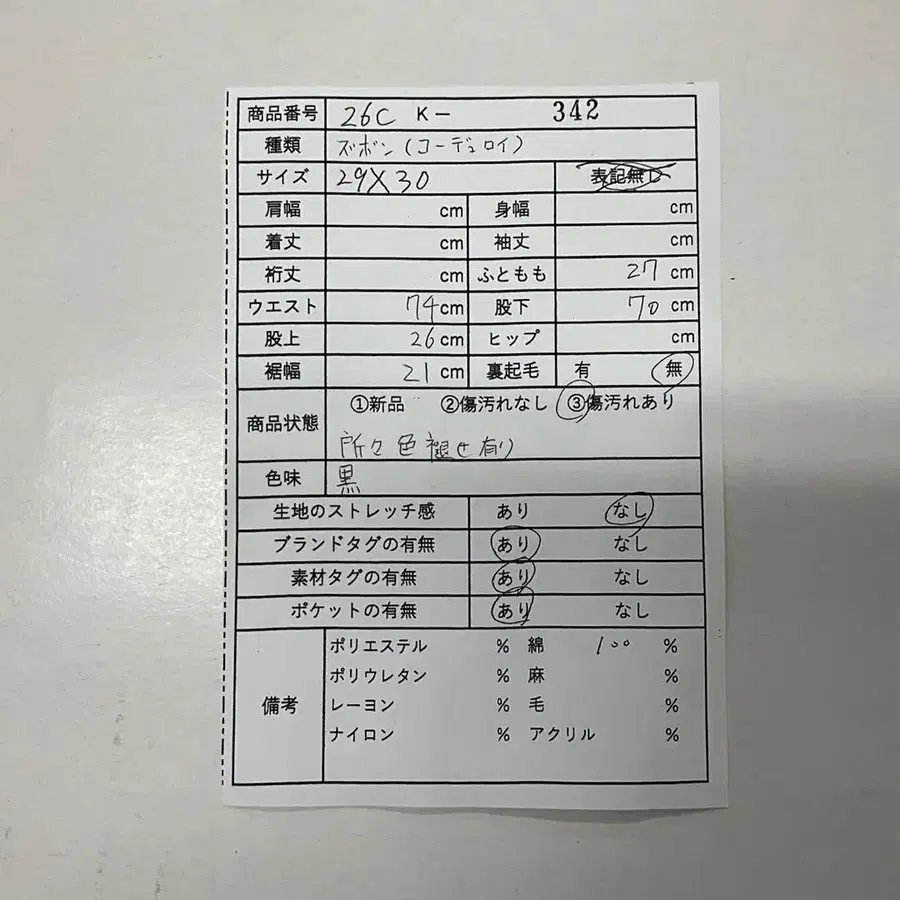 商品番号 26C K- 342
種類 ズボン(コーデュロイ)
サイズ 29X30 表記無し
肩幅 cm 身幅 cm
着丈 cm 袖丈 cm
裄丈 cm ふともも 27 cm
ウエスト 74cm 股下 70 cm
股上 26 cm ヒップ cm
裾幅 21 cm 裏起毛 有 無
商品状態 ①新品 ②傷汚れなし ③傷汚れあり
所々色褪せ有り
色味 黒
生地のストレッチ感 あり なし
ブランドタグの有無 あり なし
素材タグの有無 あり なし
ポケットの有無 あり なし
備考
ポリエステル % 綿 100 %
ポリウレタン % 麻 %
レーヨン % 毛 %
ナイロン % アクリル %